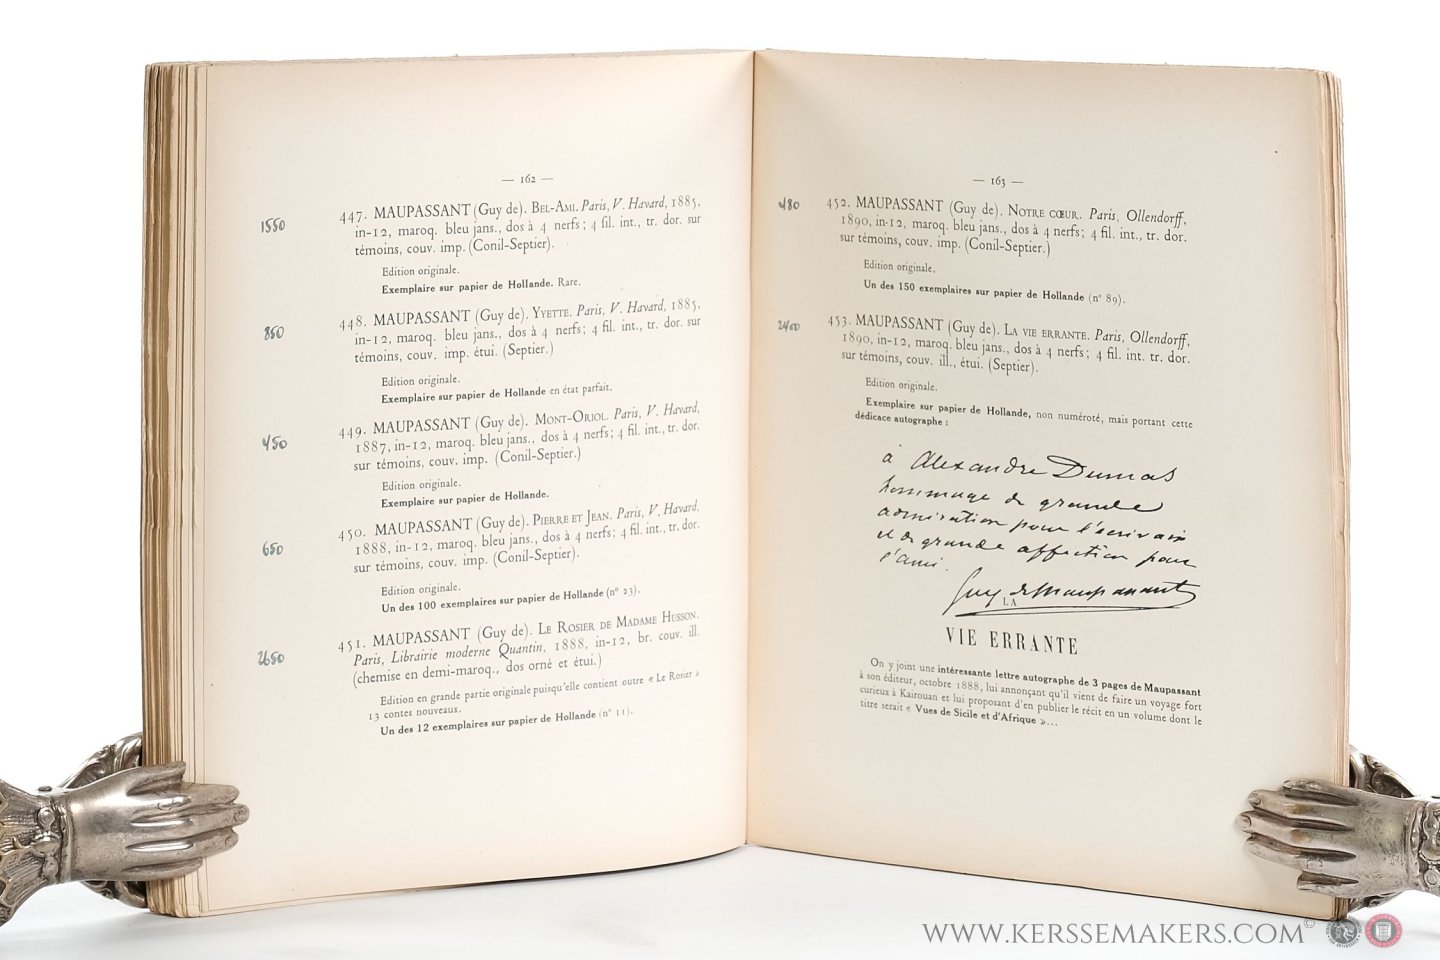 — 162 —
1550
447. MAUPASSANT (Guy de). BEL-AMI. Paris, V. Havard, 1885,
in-12, maroq. bleu jans., dos à 4 nerfs; 4 fil. int., tr. dor. sur
témoins, couv. imp. (Conil-Septier).
Edition originale.
Exemplaire sur papier de Hollande. Rare.
850
448. MAUPASSANT (Guy de). YVETTE. Paris, V. Havard, 1885,
in-12, maroq. bleu jans., dos à 4 nerfs; 4 fil. int., tr. dor. sur
témoins, couv. imp. étui. (Septier.)
Edition originale.
Exemplaire sur papier de Hollande en état parfait.
450
449. MAUPASSANT (Guy de). MONT-ORIOL. Paris, V. Havard,
1887, in-12, maroq. bleu jans., dos à 4 nerfs; 4 fil. int., tr. dor.
sur témoins, couv. imp. (Conil-Septier.)
Edition originale.
Exemplaire sur papier de Hollande.
650
450. MAUPASSANT (Guy de). PIERRE ET JEAN. Paris, V. Havard,
1888, in-12, maroq. bleu jans., dos à 4 nerfs; 4 fil. int., tr. dor.
sur témoins, couv. imp. (Conil-Septier).
Edition originale.
Un des 100 exemplaires sur papier de Hollande (n° 23).
2650
451. MAUPASSANT (Guy de). LE ROSIER DE MADAME HUSSON.
Paris, Librairie moderne Quantin, 1888, in-12, br. couv. ill.
(chemise en demi-maroq., dos orné et étui.)
Edition en grande partie originale puisqu'elle contient outre « Le Rosier »
13 contes nouveaux.
Un des 12 exemplaires sur papier de Hollande (n° 11).
— 163 —
480
452. MAUPASSANT (Guy de). NOTRE CŒUR. Paris, Ollendorff,
1890, in-12, maroq. bleu jans., dos à 4 nerfs; 4 fil. int., tr. dor.
sur témoins, couv. imp. (Conil-Septier.)
Edition originale.
Un des 150 exemplaires sur papier de Hollande (n° 89).
2400
453. MAUPASSANT (Guy de). LA VIE ERRANTE. Paris, Ollendorff,
1890, in-12, maroq. bleu jans., dos à 4 nerfs; 4 fil. int. tr. dor.
sur témoins, couv. ill., étui. (Septier).
Edition originale.
Exemplaire sur papier de Hollande, non numéroté, mais portant cette
dédicace autographe :
à Alexandre Dumas
hommage de grande
admiration pour l'écrivain
et de grande affection pour
l'ami.
Guy de Maupassant
LA
VIE ERRANTE
On y joint une intéressante lettre autographe de 3 pages de Maupassant
à son éditeur, octobre 1888, lui annonçant qu'il vient de faire un voyage fort
curieux à Kairouan et lui proposant d'en publier le récit en un volume dont le
titre serait « Vues de Sicile et d'Afrique »...
WWW.KERSSEMAKERS.COM©